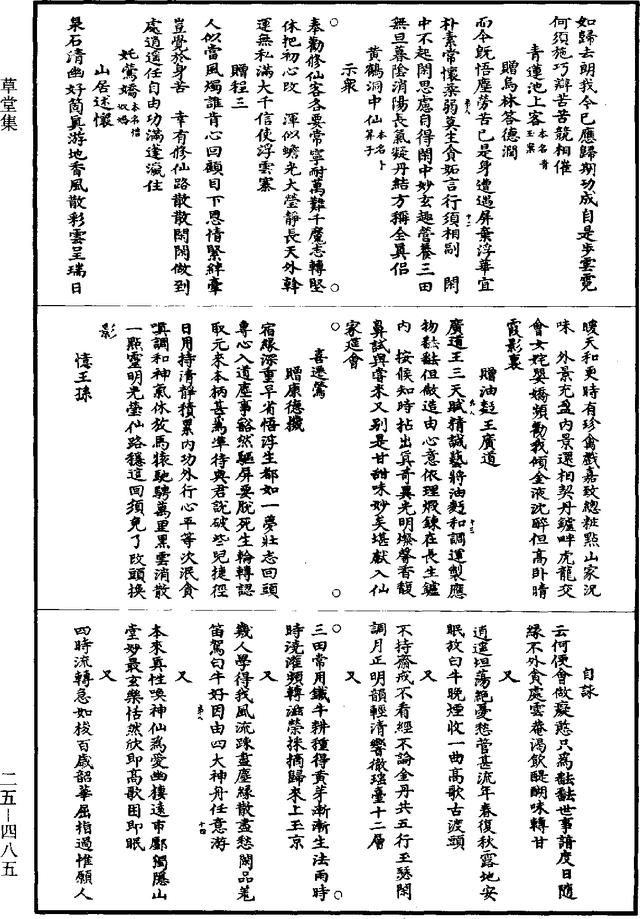 如歸去朗我今已應歸期功成自是步雲霓
何須施巧辯苦苦競相催
青蓮池上客本名青玉案
贈烏林答德潤
而今既悟塵勞苦已是身遭遇屏棄浮華宜
朴素常懷柔弱莫生貪妬言行須相副 閑
中不起閑思慮自得閑中妙玄趣營養三田
無旦暮陰消陽長氣凝丹結方稱全真侶
黃鶴洞中仙本名卜算子
示衆
奉勸修仙客各要常寧耐萬難千魔志轉堅
休把初心改 渾似蟾光大瑩靜長天外斡
運無私滿大千信使浮雲寨
贈程三
人似當風燭誰肯心回顧目下恩情緊絆牽
豈覺於身苦 幸有修仙路散散閑閑做到
處逍遥任自由功滿蓬瀛住
姹鶯嬌本名惜奴嬌
山居述懷
泉石清幽好箇真游地香風散彩雲呈瑞日
暖天和更時有珍禽戲嘉致總粧點山家況
味 外景充盈內景還相契丹鑪畔虎龍交
會女姹嬰嬌頻勸我傾金液沈醉但高卧晴
霞影裏
贈油麫王廣道
廣道王三天賦精誠藝將油麫和調運製應
物黏黏但做造由心意依理煅鍊在長生鑪
內 按候知時拈出真奇異光明燦馨香馥
鼻試與嘗來又別是甘甜味妙矣堪獻入仙
家筵會
喜遷鶯
贈康德機
宿緣深重早省悟浮生都如一夢壯志回頭
專心入道塵事豁然驅屏要脫死生輪轉認
取元來本柄甚爲準待與君說破些兒捷徑
日用持清靜積累內功外行心平等次泯貪
嗔調和神氣休放馬猿馳騁萬里黑雲消散
一點靈明光瑩仙路穩這回須免了改頭換
影
憶王孫
自詠
云何便會做癡憨只爲黏黏世事諳度日隨
緣不外貪處雲菴渴飲醍醐味轉甘
又
逍遥坦蕩絶憂愁管甚流年春復秋露地安
眠放白牛晚煙收一曲高歌古渡頭
又
不持齋戒不看經不論金丹共五行玉瑟閑
調月正明韻輕清響徹瑶臺十二層
又
三田常用鐵牛耕種得黃芽漸漸生法雨時
時澆灌頻轉滋榮採摘歸來上玉京
又
幾人學得我風流疎盡塵緣散盡愁閑品羌
笛駕白牛好因由四大神舟任意游
又
本來真性喚神仙爲愛幽棲遠市鄽獨隱山
堂妙最玄樂恬然欣即高歌困即眠
又
四時流轉急如梭百歲韶華屈指過惟願人
草堂集
二五－四八五